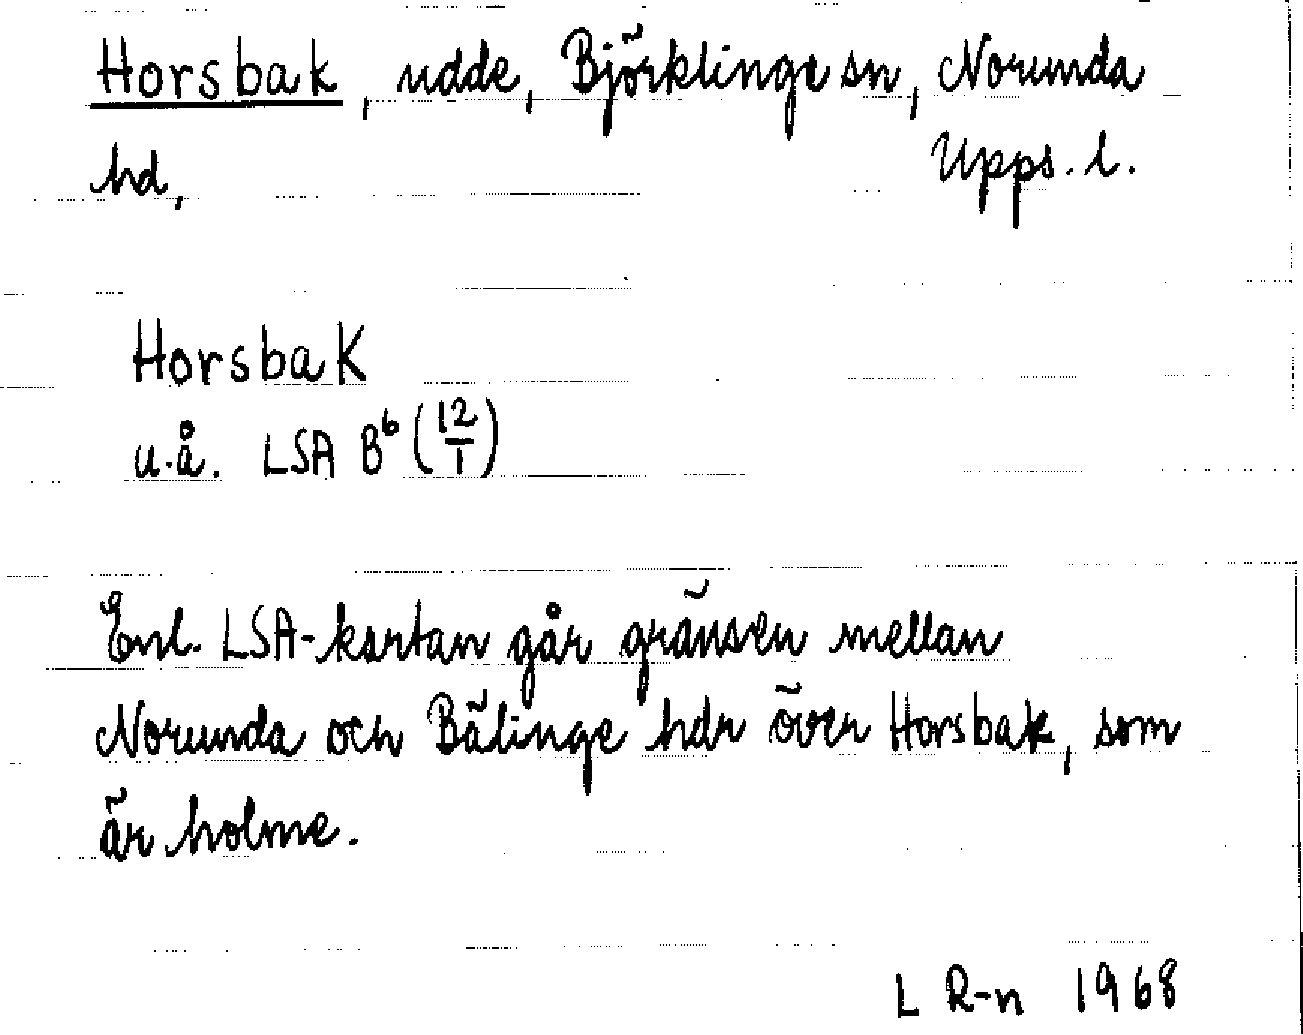 Horsbak, udde, Björklinge sn, Norunda
hd, Upps. l.
Horsbak
u.å. LSA B⁶ (12/1)
Enl. LSA-kartan går gränsen mellan
Norunda och Bälinge hdr över Horsbak, som
är holme.
L R-n 1968